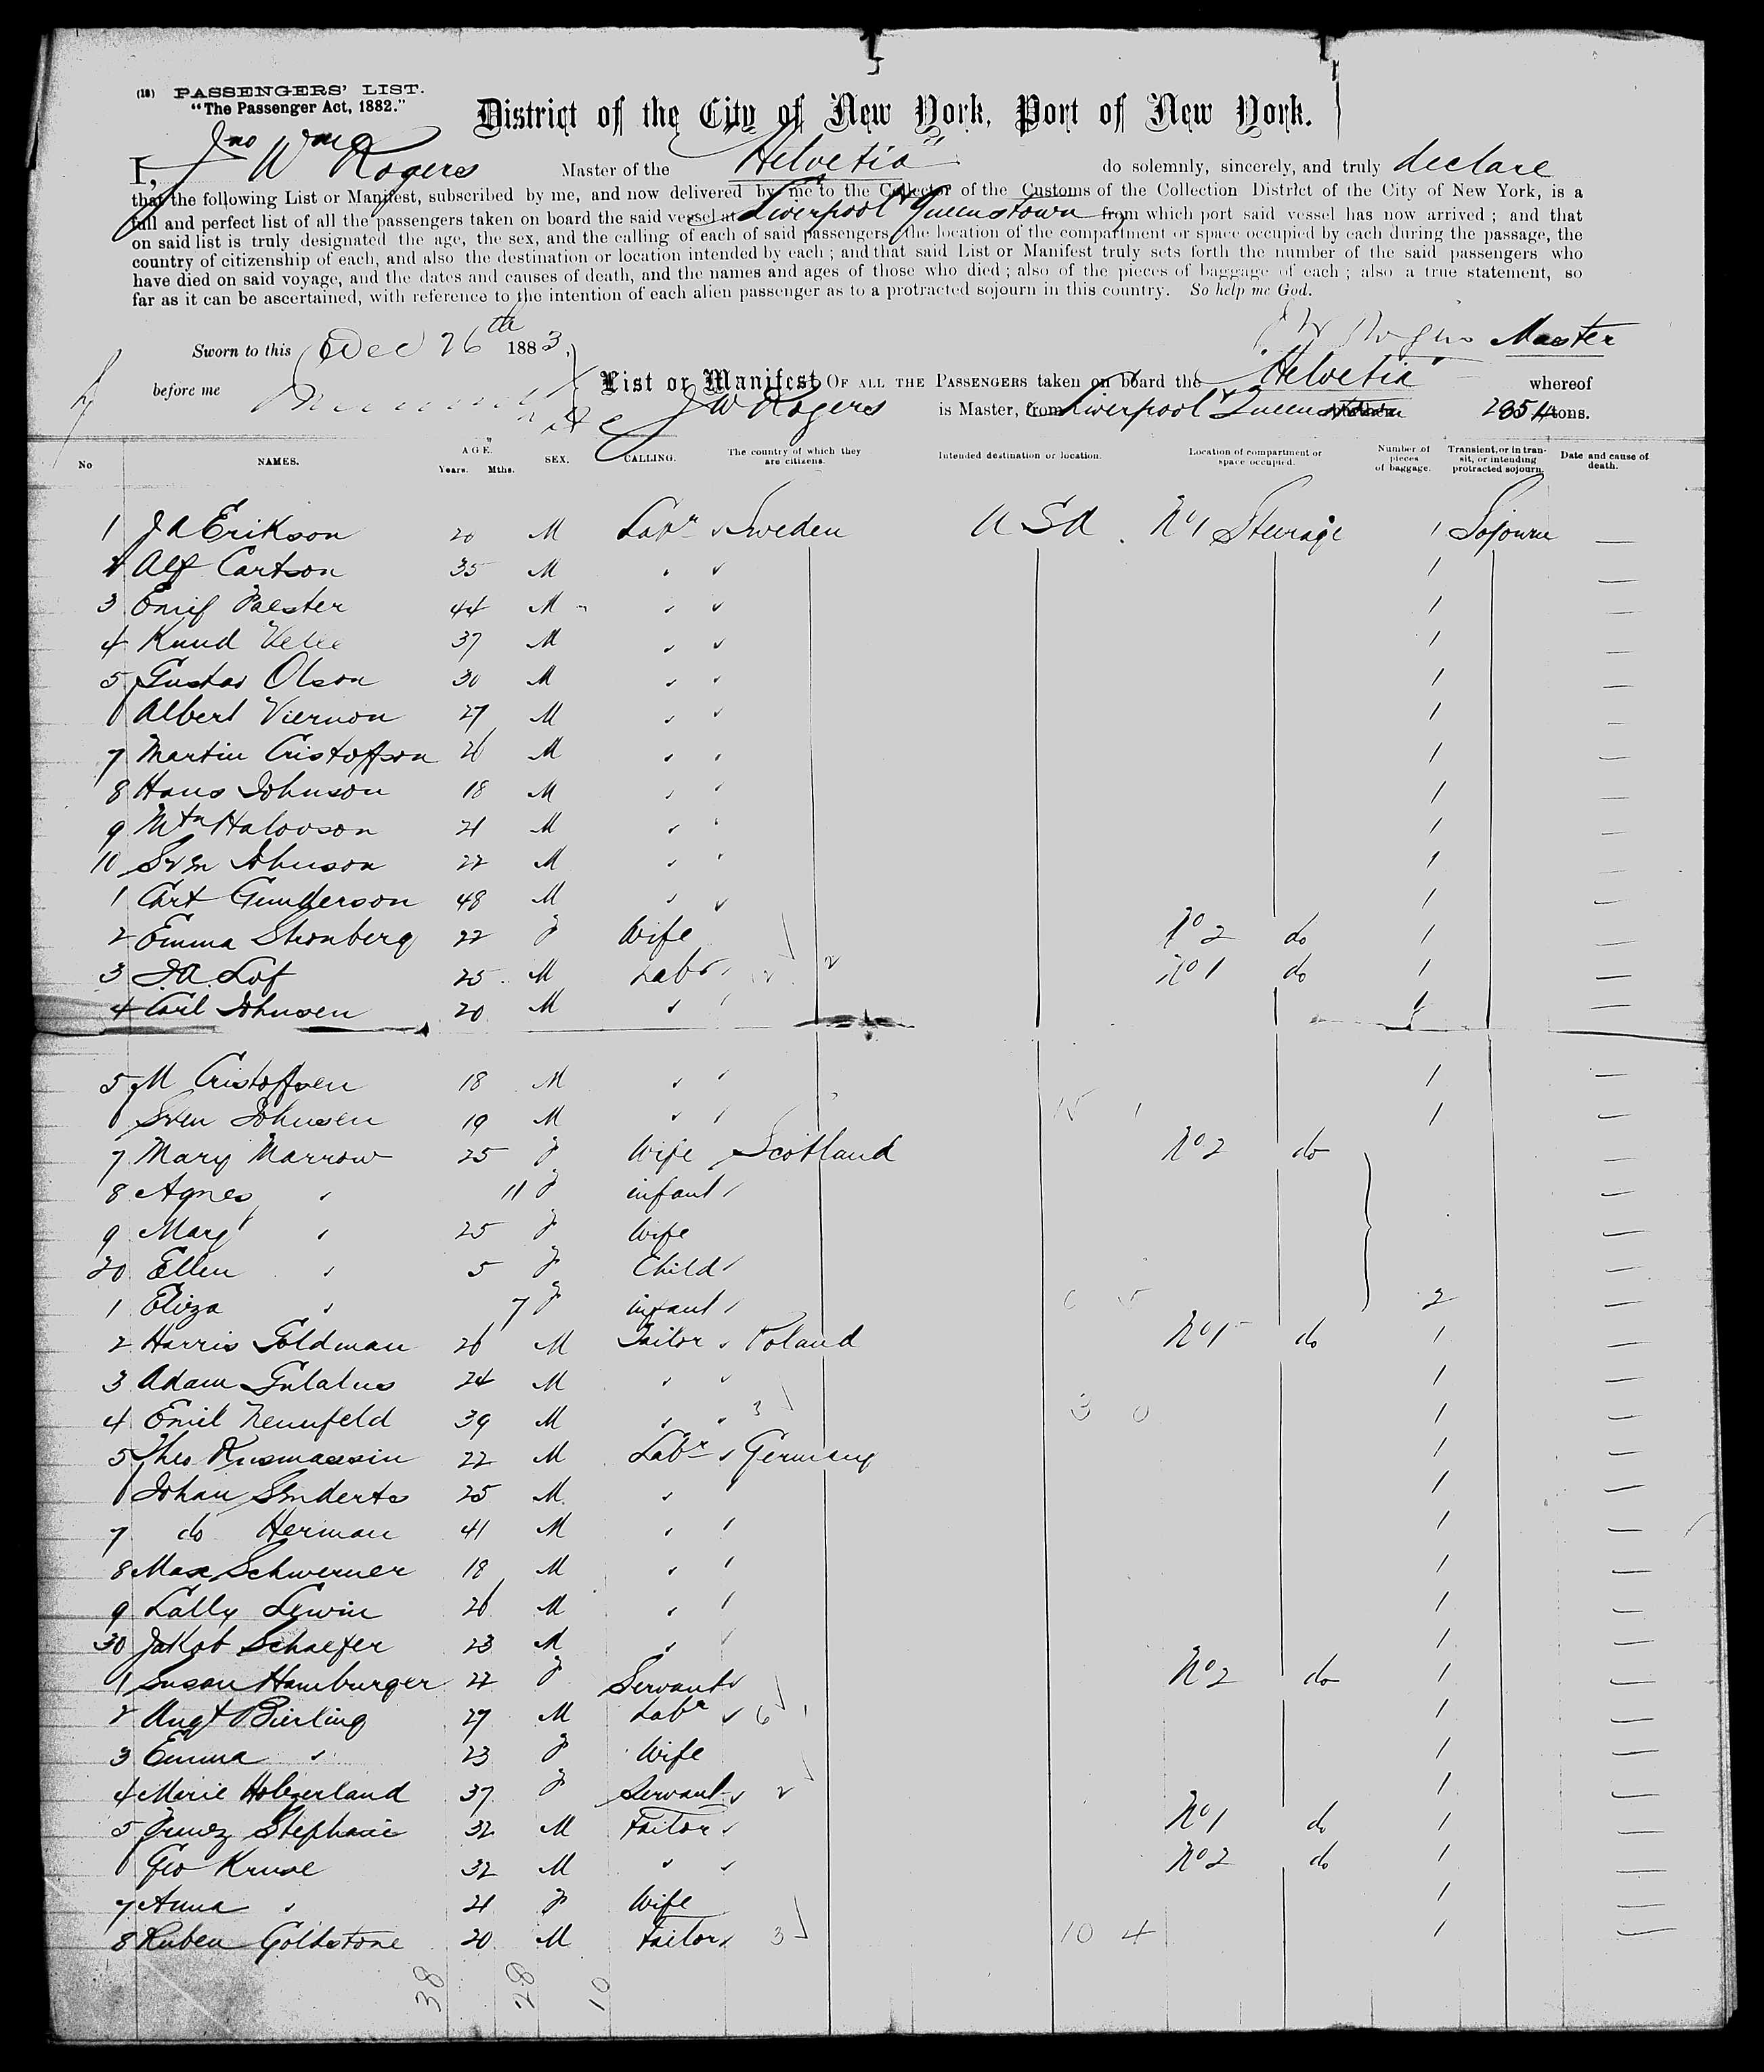 (18) PASSENGERS' LIST.
"The Passenger Act, 1882."
District of the City of New York, Port of New York.
I, J W Rogers Master of the "Helvetia" do solemnly, sincerely, and truly declare
that the following List or Manifest, subscribed by me, and now delivered by me to the Collector of the Customs of the Collection District of the City of New York, is a
full and perfect list of all the passengers taken on board the said vessel at Liverpool & Queenstown from which port said vessel has now arrived; and that
on said list is truly designated the age, the sex, and the calling of each of said passengers, the location of the compartment or space occupied by each during the passage, the
country of citizenship of each, and also the destination or location intended by each; and that said List or Manifest truly sets forth the number of the said passengers who
have died on said voyage, and the dates and causes of death, and the names and ages of those who died; also of the pieces of baggage of each; also a true statement, so
far as it can be ascertained, with reference to the intention of each alien passenger as to a protracted sojourn in this country. So help me God.
Sworn to this Dec 26th 1883, J W Rogers Master
before me
List or Manifest OF ALL THE PASSENGERS taken on board the "Helvetia" whereof
J W Rogers is Master, from Liverpool & Queenstown tons.
No NAMES. AGE. Years. Mths. SEX. CALLING. The country of which they are citizens. Intended destination or location. Location of compartment or space occupied. Number of pieces of baggage. Transient, or in transit, or intending protracted sojourn. Date and cause of death.
1 J A Erikson 20 M Labr " Sweden U S A No 1 Steerage 1 Sojourn —
2 Alf Carlson 35 M " " 1 —
3 44 M " " 1 —
4 Knud 37 M " " 1 —
5 Gustav Olson 30 M " " 1 —
6 Albert Viernon 27 M " " 1 —
7 Martin Cristoffson 26 M " " 1 —
8 Hans Johnson 18 M " " 1 —
9 Mtn Halovson 21 M " " 1 —
10 Sven Johnson 22 M " " 1 —
1 Carl Gunderson 48 M " " 1 —
2 Emma Stromberg 22 F Wife No 2 do 1 —
3 J A Lof 25 M Labr " No 1 do 1 —
4 Carl Johnsen 20 M " " 1 —
5 M Cristoffsen 18 M " " 1 —
6 Sven Johnsen 19 M " " 15 1 1 —
7 Mary Marrow 25 F Wife " Scotland No 2 do —
8 Agnes " 11 F infant " —
9 Mary " 25 F Wife —
20 Ellen " 5 F Child " —
1 Eliza " 7 F infant " 0 5 2 —
2 Harris Goldman 26 M Tailor " Poland No 1 do 1 —
3 Adam 24 M " " 1 —
4 Emil Neunfeld 39 M " " 3 3 0 1 —
5 Theo 22 M Labr " Germany 1 —
6 Johan Sanderts 25 M " " 1 —
7 do Herman 41 M " " 1 —
8 Max Schwerner 18 M " " 1 —
9 Lally Lewin 26 M " " 1 —
30 Jakob Schaefer 23 M " " 1 —
1 Susan Hamburger 22 F Servant " No 2 do 1 —
2 Augt Bierling 27 M Labr " 6 1 —
3 Emma " 23 F Wife 1 —
4 Marie 37 F Servant " 2 1 —
5 Franz Stephanie 32 M Tailor " No 1 do 1 —
6 Geo Kruse 32 M " " No 2 do 1 —
7 Anna " 21 F Wife 1 —
8 Ruben Goldstone 20 M Tailor " 3 10 4 1 —
38 28 10